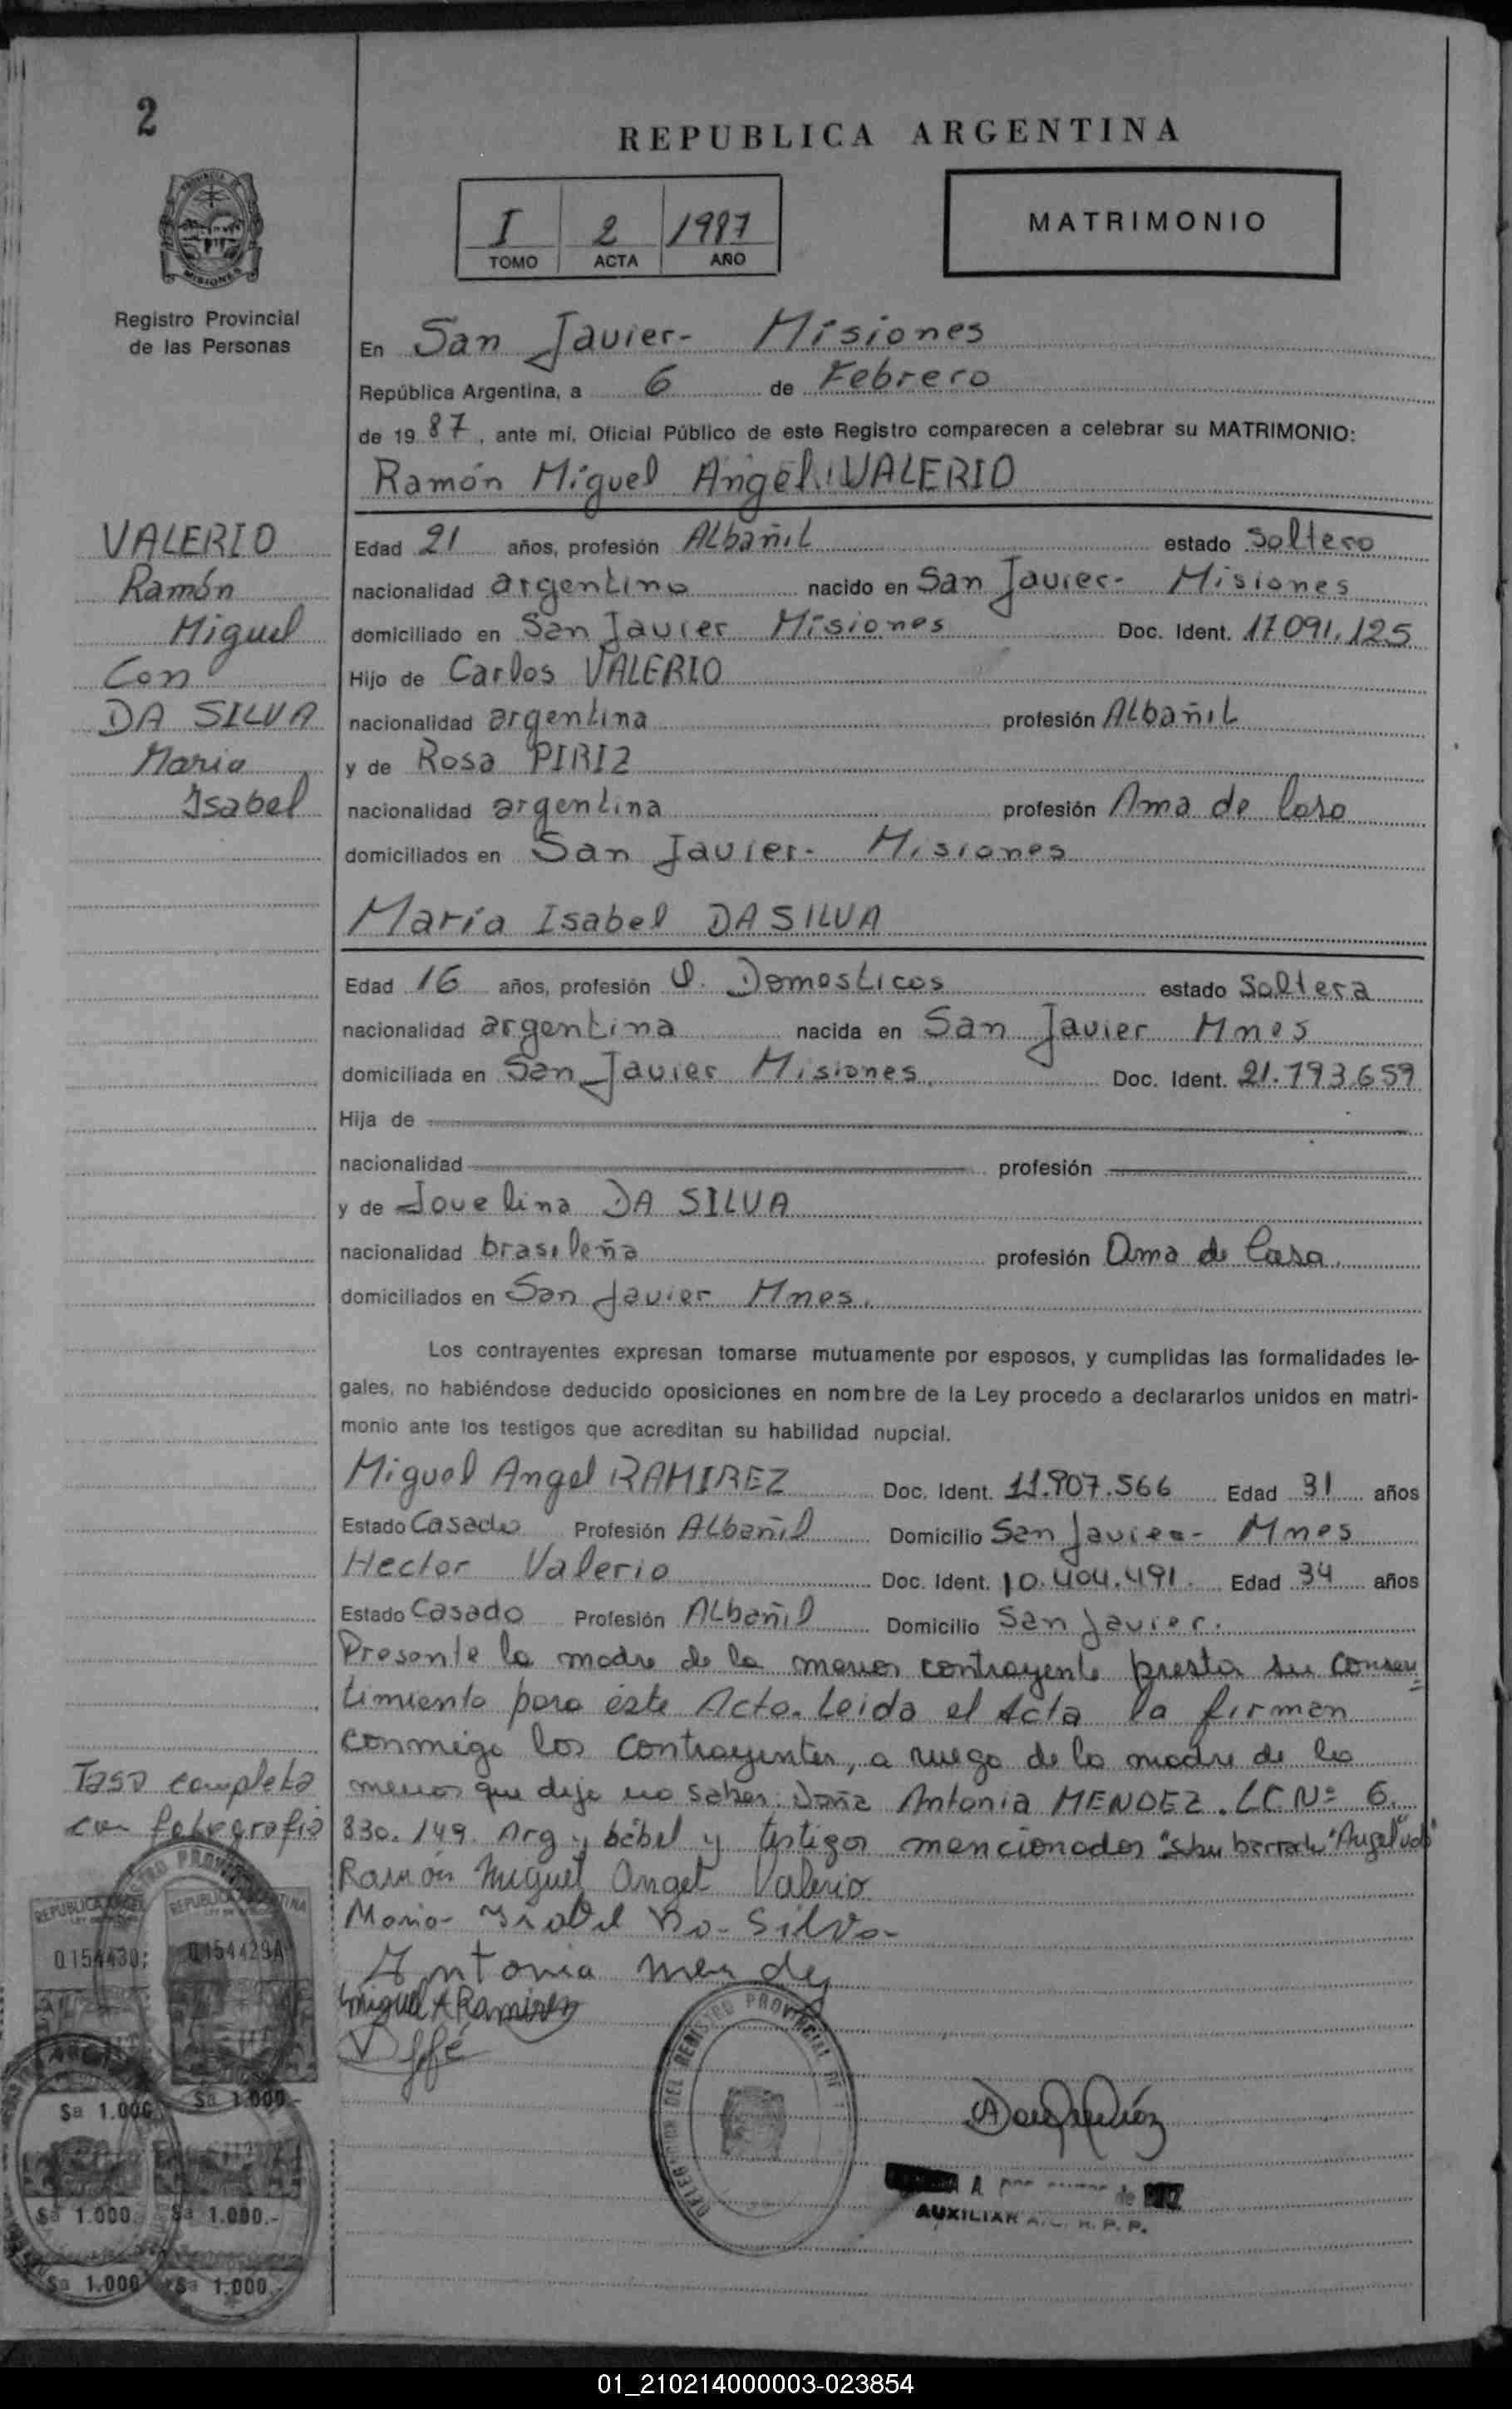 2
REPUBLICA ARGENTINA
I 2 1987
TOMO ACTA AÑO
MATRIMONIO
Registro Provincial
de las Personas
En San Javier- Misiones
República Argentina, a 6 de Febrero
de 19 87, ante mí, Oficial Público de este Registro comparecen a celebrar su MATRIMONIO:
Ramón Miguel Angel VALERIO
VALERIO
Ramón
Miguel
Con
DA SILVA
Maria
Isabel
Edad 21 años, profesión ALbañiL estado Soltero
nacionalidad argentino nacido en San Javier- Misiones
domiciliado en San Javier Misiones Doc. Ident. 17 091.125
Hijo de Carlos VALERIO
nacionalidad argentina profesión ALbañiL
y de Rosa PIRIZ
nacionalidad argentina profesión Ama de Casa
domiciliados en San Javier- Misiones
María Isabel DA SILVA
Edad 16 años, profesión Q. Domosticos estado Soltera
nacionalidad argentina nacida en San Javier Mnes
domiciliada en San Javier Misiones. Doc. Ident. 21.793.659
Hija de
nacionalidad profesión
y de Jovelina DA SILVA
nacionalidad brasileña profesión Ama de Casa.
domiciliados en San Javier Mnes.
Los contrayentes expresan tomarse mutuamente por esposos, y cumplidas las formalidades le-
gales, no habiéndose deducido oposiciones en nombre de la Ley procedo a declararlos unidos en matri-
monio ante los testigos que acreditan su habilidad nupcial.
Miguel Angel RAMIREZ Doc. Ident. 11.907.566 Edad 31 años
Estado Casado Profesión ALbañil Domicilio San Javier- Mnes
Hector Valerio Doc. Ident. 10.404.491. Edad 34 años
Estado Casado Profesión ALbañil Domicilio San Javier.
Presente la madre de la menor contrayente presta su consen
timiento para éste Acto. Leida el Acta la firman
conmigo los contrayentes, a ruego de la madre de la
menor que dijo no saber: Doña Antonia MENDEZ. LC Nº 6.
830.149. Arg y hábil y testigos mencionados "Angel"
Tasa completa
con fotografía
Ramón Miguel Angel Valerio
Maria Isabel Da Silva
Antonia Mendez
Miguel A Ramirez
DELEGACION DEL REGISTRO PROVINCIAL DE
AUXILIAR
REPUBLICA ARGENTINA
REPUBLICA ARGENTINA
0154429A
$a 1.000
$a 1.000.-
$a 1.000.
$a 1.000.-
$a 1.000
$a 1.000.-
01_210214000003-023854